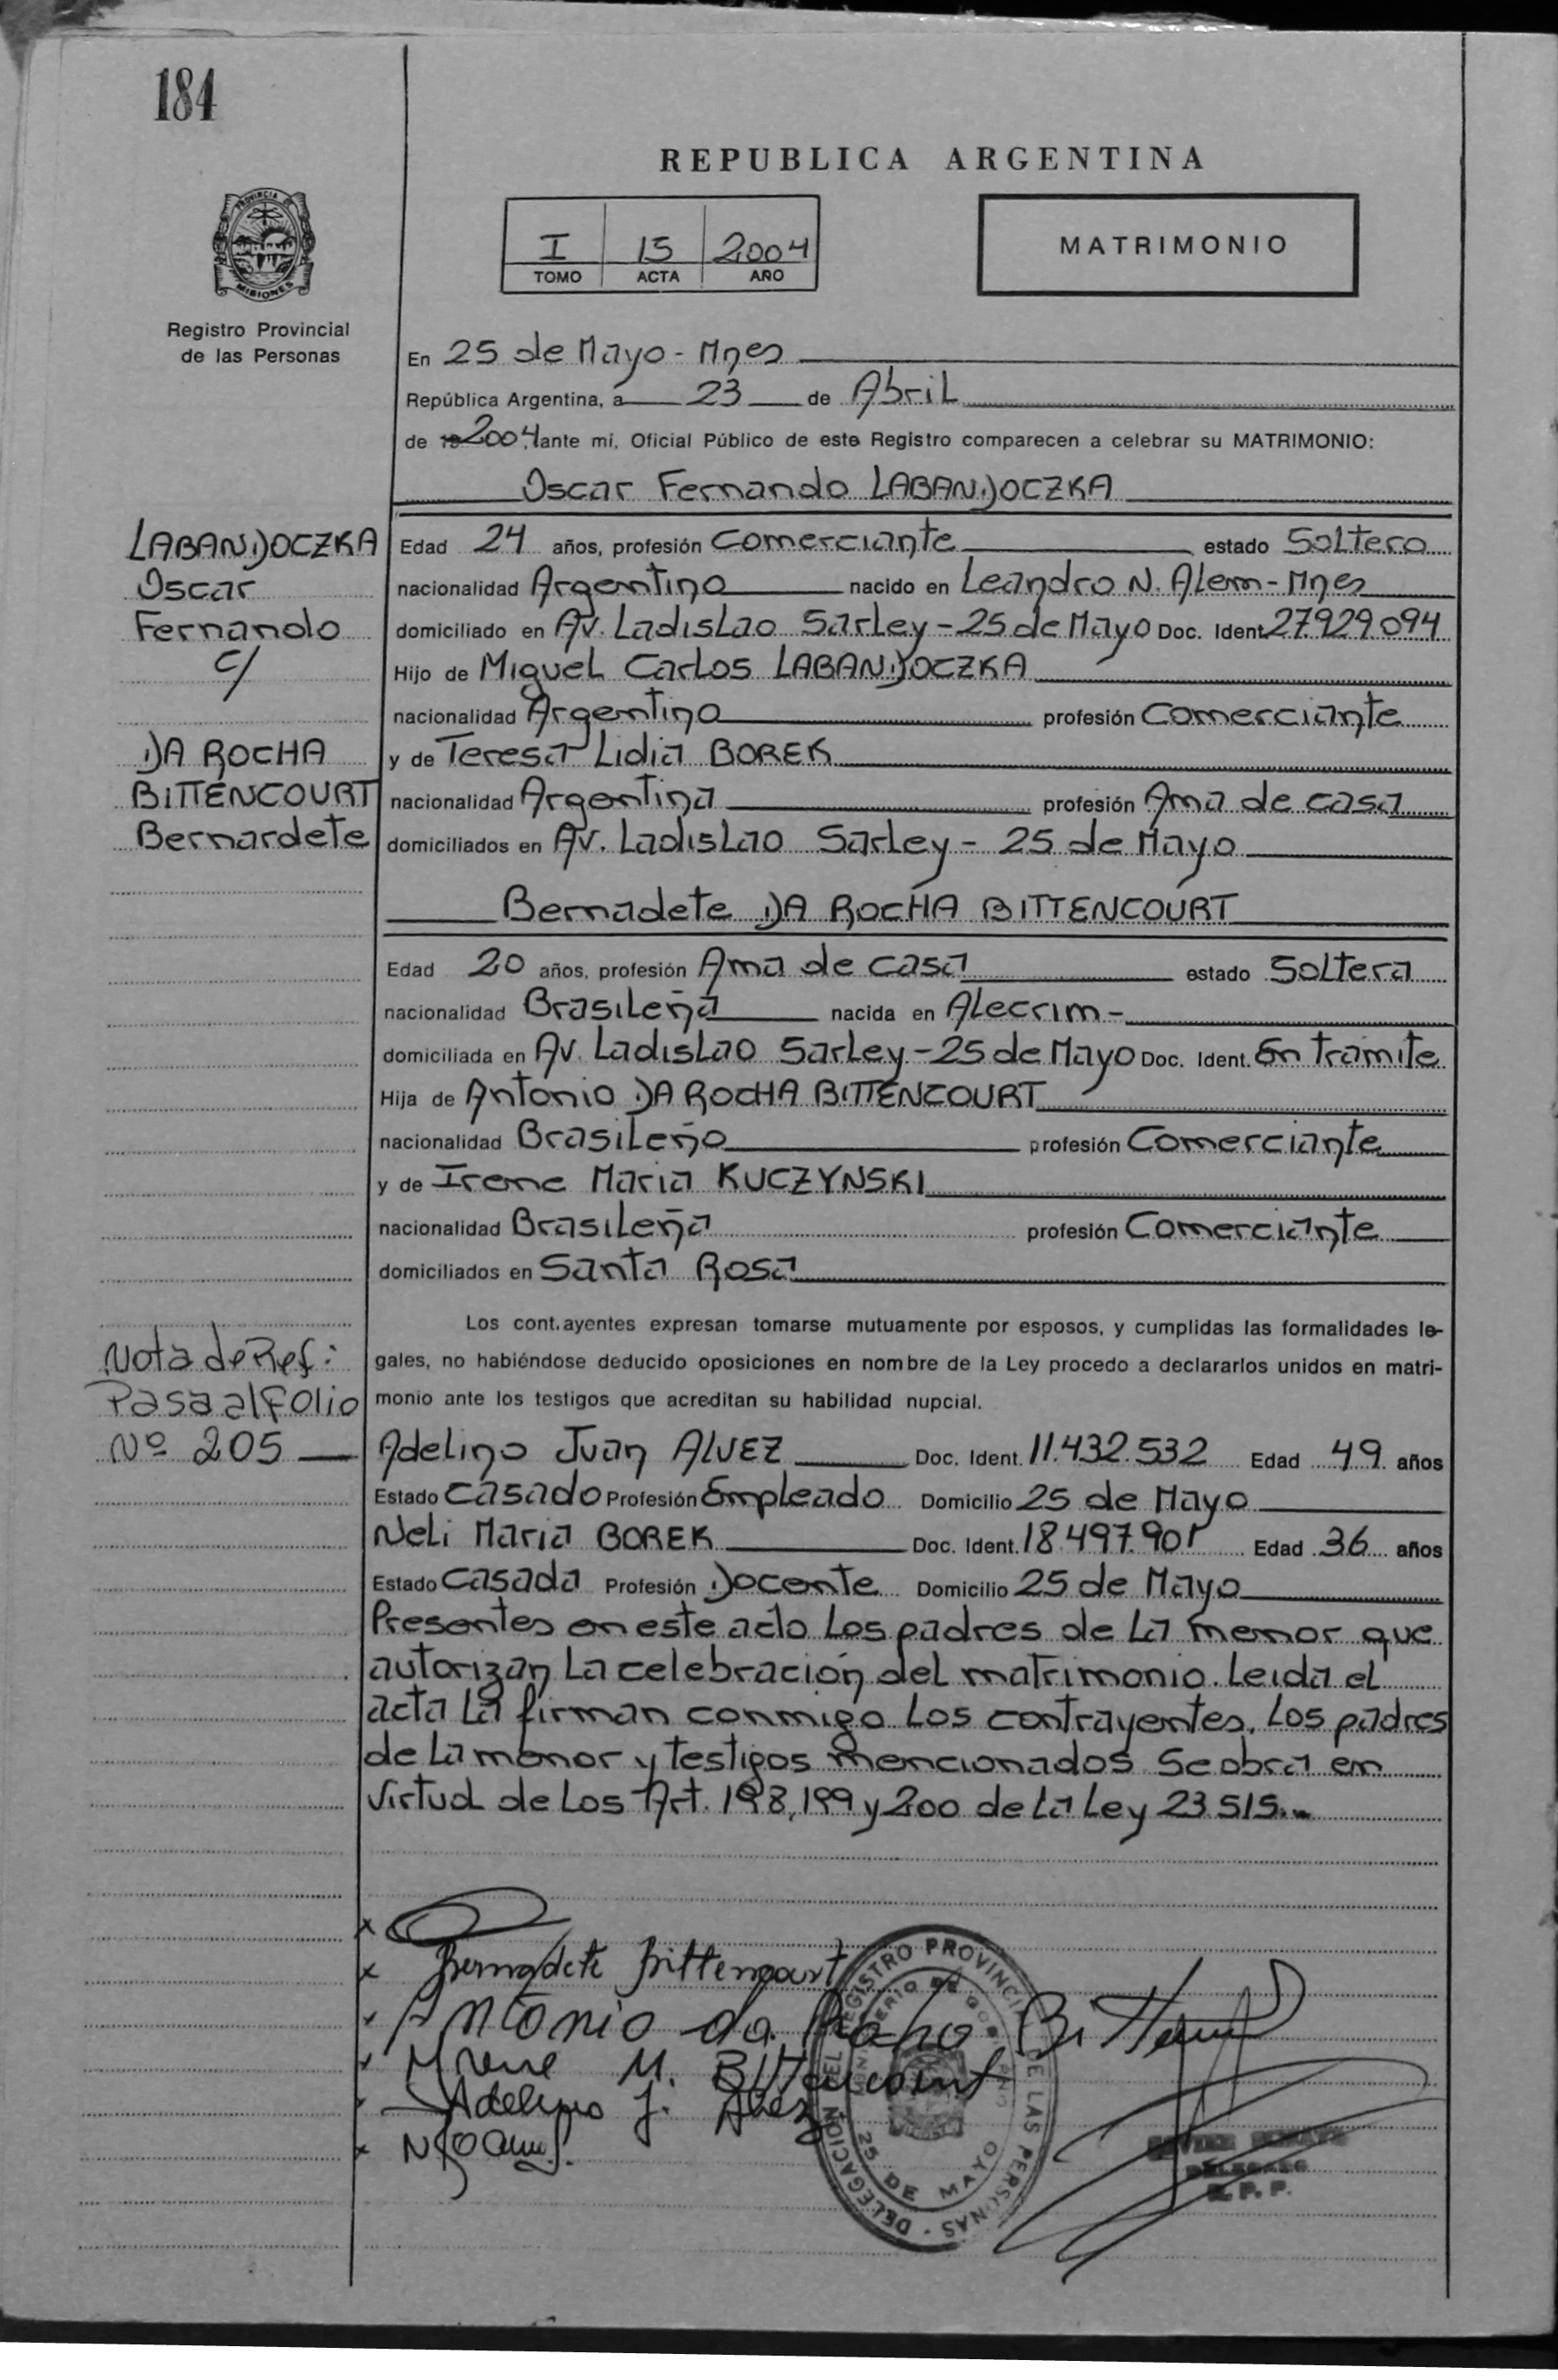 184
REPUBLICA ARGENTINA
PROVINCIA DE
MISIONES
Registro Provincial
de las Personas
I 15 2004
TOMO ACTA AÑO
MATRIMONIO
En 25 de Mayo - Mnes
República Argentina, a 23 de Abril
de 19 2004 ante mí, Oficial Público de este Registro comparecen a celebrar su MATRIMONIO:
Oscar Fernando LABANDOCZKA
LABANDOCZKA
Oscar
Fernando
c/
DA ROCHA
BITTENCOURT
Bernardete
Edad 24 años, profesión Comerciante estado Soltero
nacionalidad Argentino nacido en Leandro N. Alem - Mnes
domiciliado en Av. Ladislao Sarley - 25 de Mayo Doc. Ident. 27.929.094
Hijo de Miguel Carlos LABANDOCZKA
nacionalidad Argentino profesión Comerciante
y de Teresa Lidia BOREK
nacionalidad Argentina profesión Ama de casa
domiciliados en Av. Ladislao Sarley - 25 de Mayo
Bernadete DA ROCHA BITTENCOURT
Edad 20 años, profesión Ama de casa estado Soltera
nacionalidad Brasileña nacida en Alecrim -
domiciliada en Av. Ladislao Sarley - 25 de Mayo Doc. Ident. En tramite
Hija de Antonio DA ROCHA BITTENCOURT
nacionalidad Brasileño profesión Comerciante
y de Irene Maria KUCZYNSKI
nacionalidad Brasileña profesión Comerciante
domiciliados en Santa Rosa
Los cont.ayentes expresan tomarse mutuamente por esposos, y cumplidas las formalidades le-
gales, no habiéndose deducido oposiciones en nombre de la Ley procedo a declararlos unidos en matri-
monio ante los testigos que acreditan su habilidad nupcial.
Nota de Ref:
Pasa al Folio
Nº 205
Adelino Juan ALVEZ Doc. Ident. 11.432.532 Edad 49 años
Estado Casado Profesión Empleado Domicilio 25 de Mayo
Neli Maria BOREK Doc. Ident. 18.497.901 Edad 36 años
Estado Casada Profesión Docente Domicilio 25 de Mayo
Presentes en este acto los padres de la menor que
autorizan la celebración del matrimonio. Leida el
acta la firman conmigo los contrayentes, los padres
de la menor y testigos mencionados. Se obra en
virtud de los Art. 198, 199 y 200 de la Ley 23.515.
Bernadete Bittencourt
Antonio da Rocho Bittencourt
Irene M. Bittencourt
Adelino J. Alvez
DELEGACION DEL REGISTRO PROVINCIAL DE LAS PERSONAS
MINISTERIO DE GOBIERNO
25 DE MAYO
DELEGADO
R. P. P.